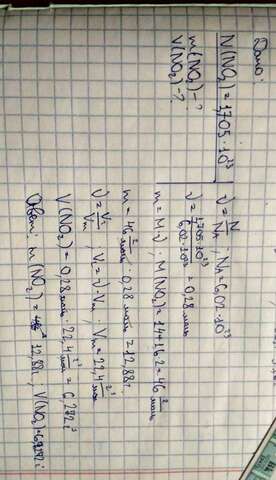 Дано:
N(NO₂) = 1,705 · 10²³
m(NO₂) - ?
V(NO₂) - ?
ν = N/Nₐ, Nₐ = 6,02 · 10²³
ν = 1,705 · 10²³ / 6,02 · 10²³ = 0,28 моль
m = M · ν, M(NO₂) = 14 + 16 · 2 = 46 г/моль
m = 46 г/моль · 0,28 моль = 12,88 г.
ν = V/Vₘ, V = ν · Vₘ, Vₘ = 22,4 л/моль
V(NO₂) = 0,28 моль · 22,4 л/моль = 6,272 л
Ответ: m(NO₂) = 12,88 г, V(NO₂) =